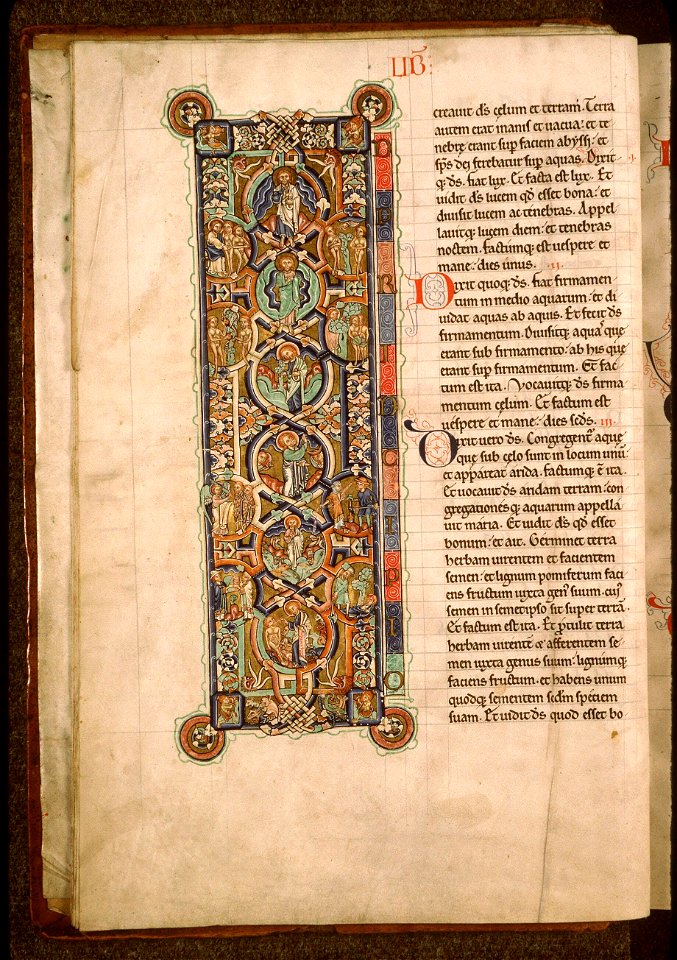 LIB̅:
IN PRINCIPIO
creauit ds̅ cęlum et terram. Terra
autem erat inanis et uacua: et te
nebrę erant sup faciem abyssi: et
sp̅s dei ferebatur sup aquas. Dixit
q; ds̅. fiat lux. Et facta est lux. Et
uidit ds̅ lucem qd̅ esset bona: et
diuisit lucem ac tenebras. Appel
lauitq; lucem diem: et tenebras
noctem. factumq; est uespere et
mane: dies unus. .ii.
Dixit quoq; ds̅. fiat firmamen
tum in medio aquarum: et di
uidat aquas ab aquis. Et fecit ds̅
firmamentum. Diuisitq; aquas que
erant sub firmamento: ab his que
erant sup firmamentum. Et fac
tum est ita. Vocauitq; ds̅ firma
mentum cęlum. Et factum est
uespere et mane: dies scds̅. iii
Dixit uero ds̅. Congregent̅ aque
que sub cęlo sunt in locum unu̅
et appareat arida. factumq; e̅ ita.
Et uocauit ds̅ aridam terram: con
gregationesq; aquarum appella
uit maria. Et uidit ds̅ qd̅ esset
bonum: et ait. Germinet terra
herbam uirentem et facientem
semen: et lignum pomiferum faci
ens fructum iuxta gen̅ suum. cui̅
semen in semetipso sit super terra̅.
Et factum est ita. Et p̅tulit terra
herbam uirente̅ & afferentem se
men iuxta genus suum: lignumq;
faciens fructum. et habens unum
quodq; sementem sedm̅ speciem
suam. Et uidit ds̅ quod esset bo